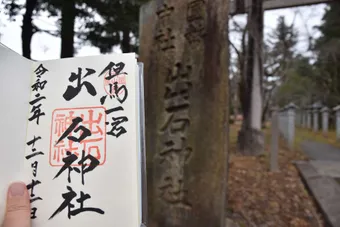 但馬一宮
出石神社
令和二年十二月十二日
出石神社
國幣中社 出石神社